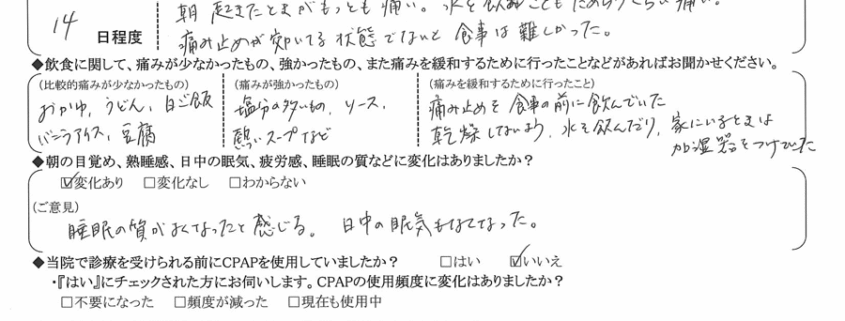 朝 起きたときがもっとも痛い。水を飲むこともためらうくらい痛い。
14 日程度
痛み止めが効いてる状態でないと 食事は難しかった。
◆飲食に関して、痛みが少なかったもの、強かったもの、また痛みを緩和するために行ったことなどがあればお聞かせください。
(比較的痛みが少なかったもの) (痛みが強かったもの) (痛みを緩和するために行ったこと)
おかゆ、うどん、白ご飯 塩分の多いもの、ソース、 痛み止めを食事の前に飲んでいた
バニラアイス、豆腐 熱いスープなど 乾燥しないよう、水を飲んだり、家にいるときは
加湿器をつけていた
◆朝の目覚め、熟睡感、日中の眠気、疲労感、睡眠の質などに変化はありましたか?
☑変化あり □変化なし □わからない
(ご意見)
睡眠の質がよくなったと感じる。 日中の眠気もなくなった。
◆当院で診療を受けられる前にCPAPを使用していましたか? □はい ☑いいえ
・『はい』にチェックされた方にお伺いします。CPAPの使用頻度に変化はありましたか?
□不要になった □頻度が減った □現在も使用中